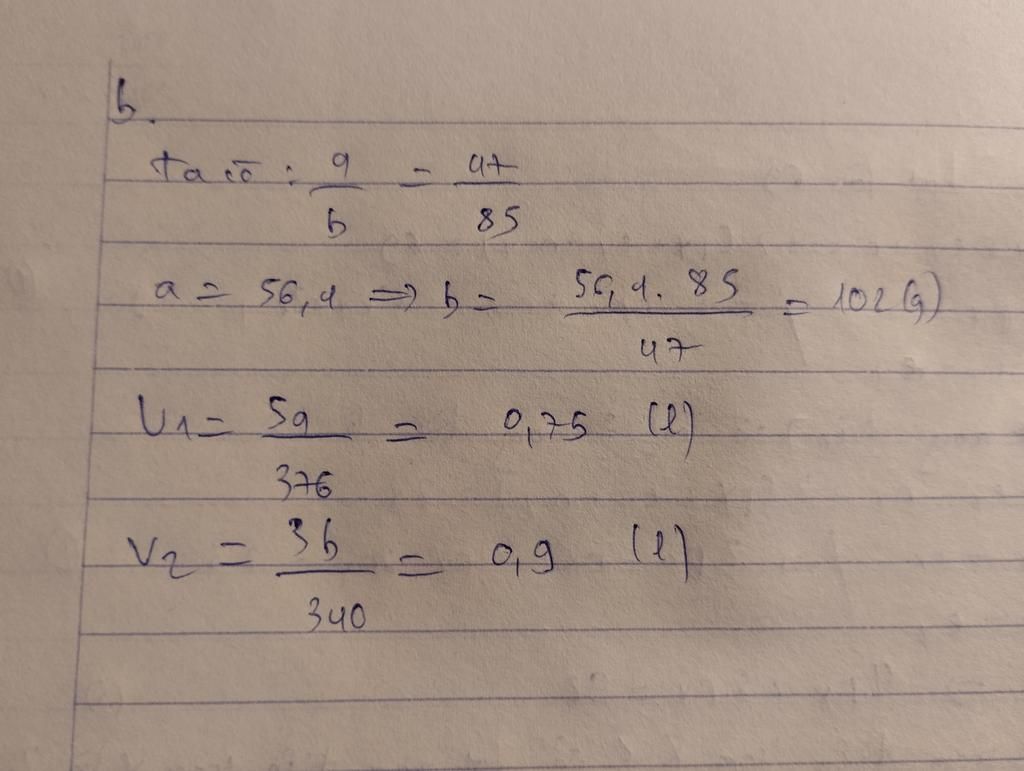 b.
ta có : a/b = 47/85
a = 56,4 => b = 56,4. 85/47 = 102 (g)
V1 = 5a/376 = 0,75 (l)
V2 = 3b/340 = 0,9 (l)